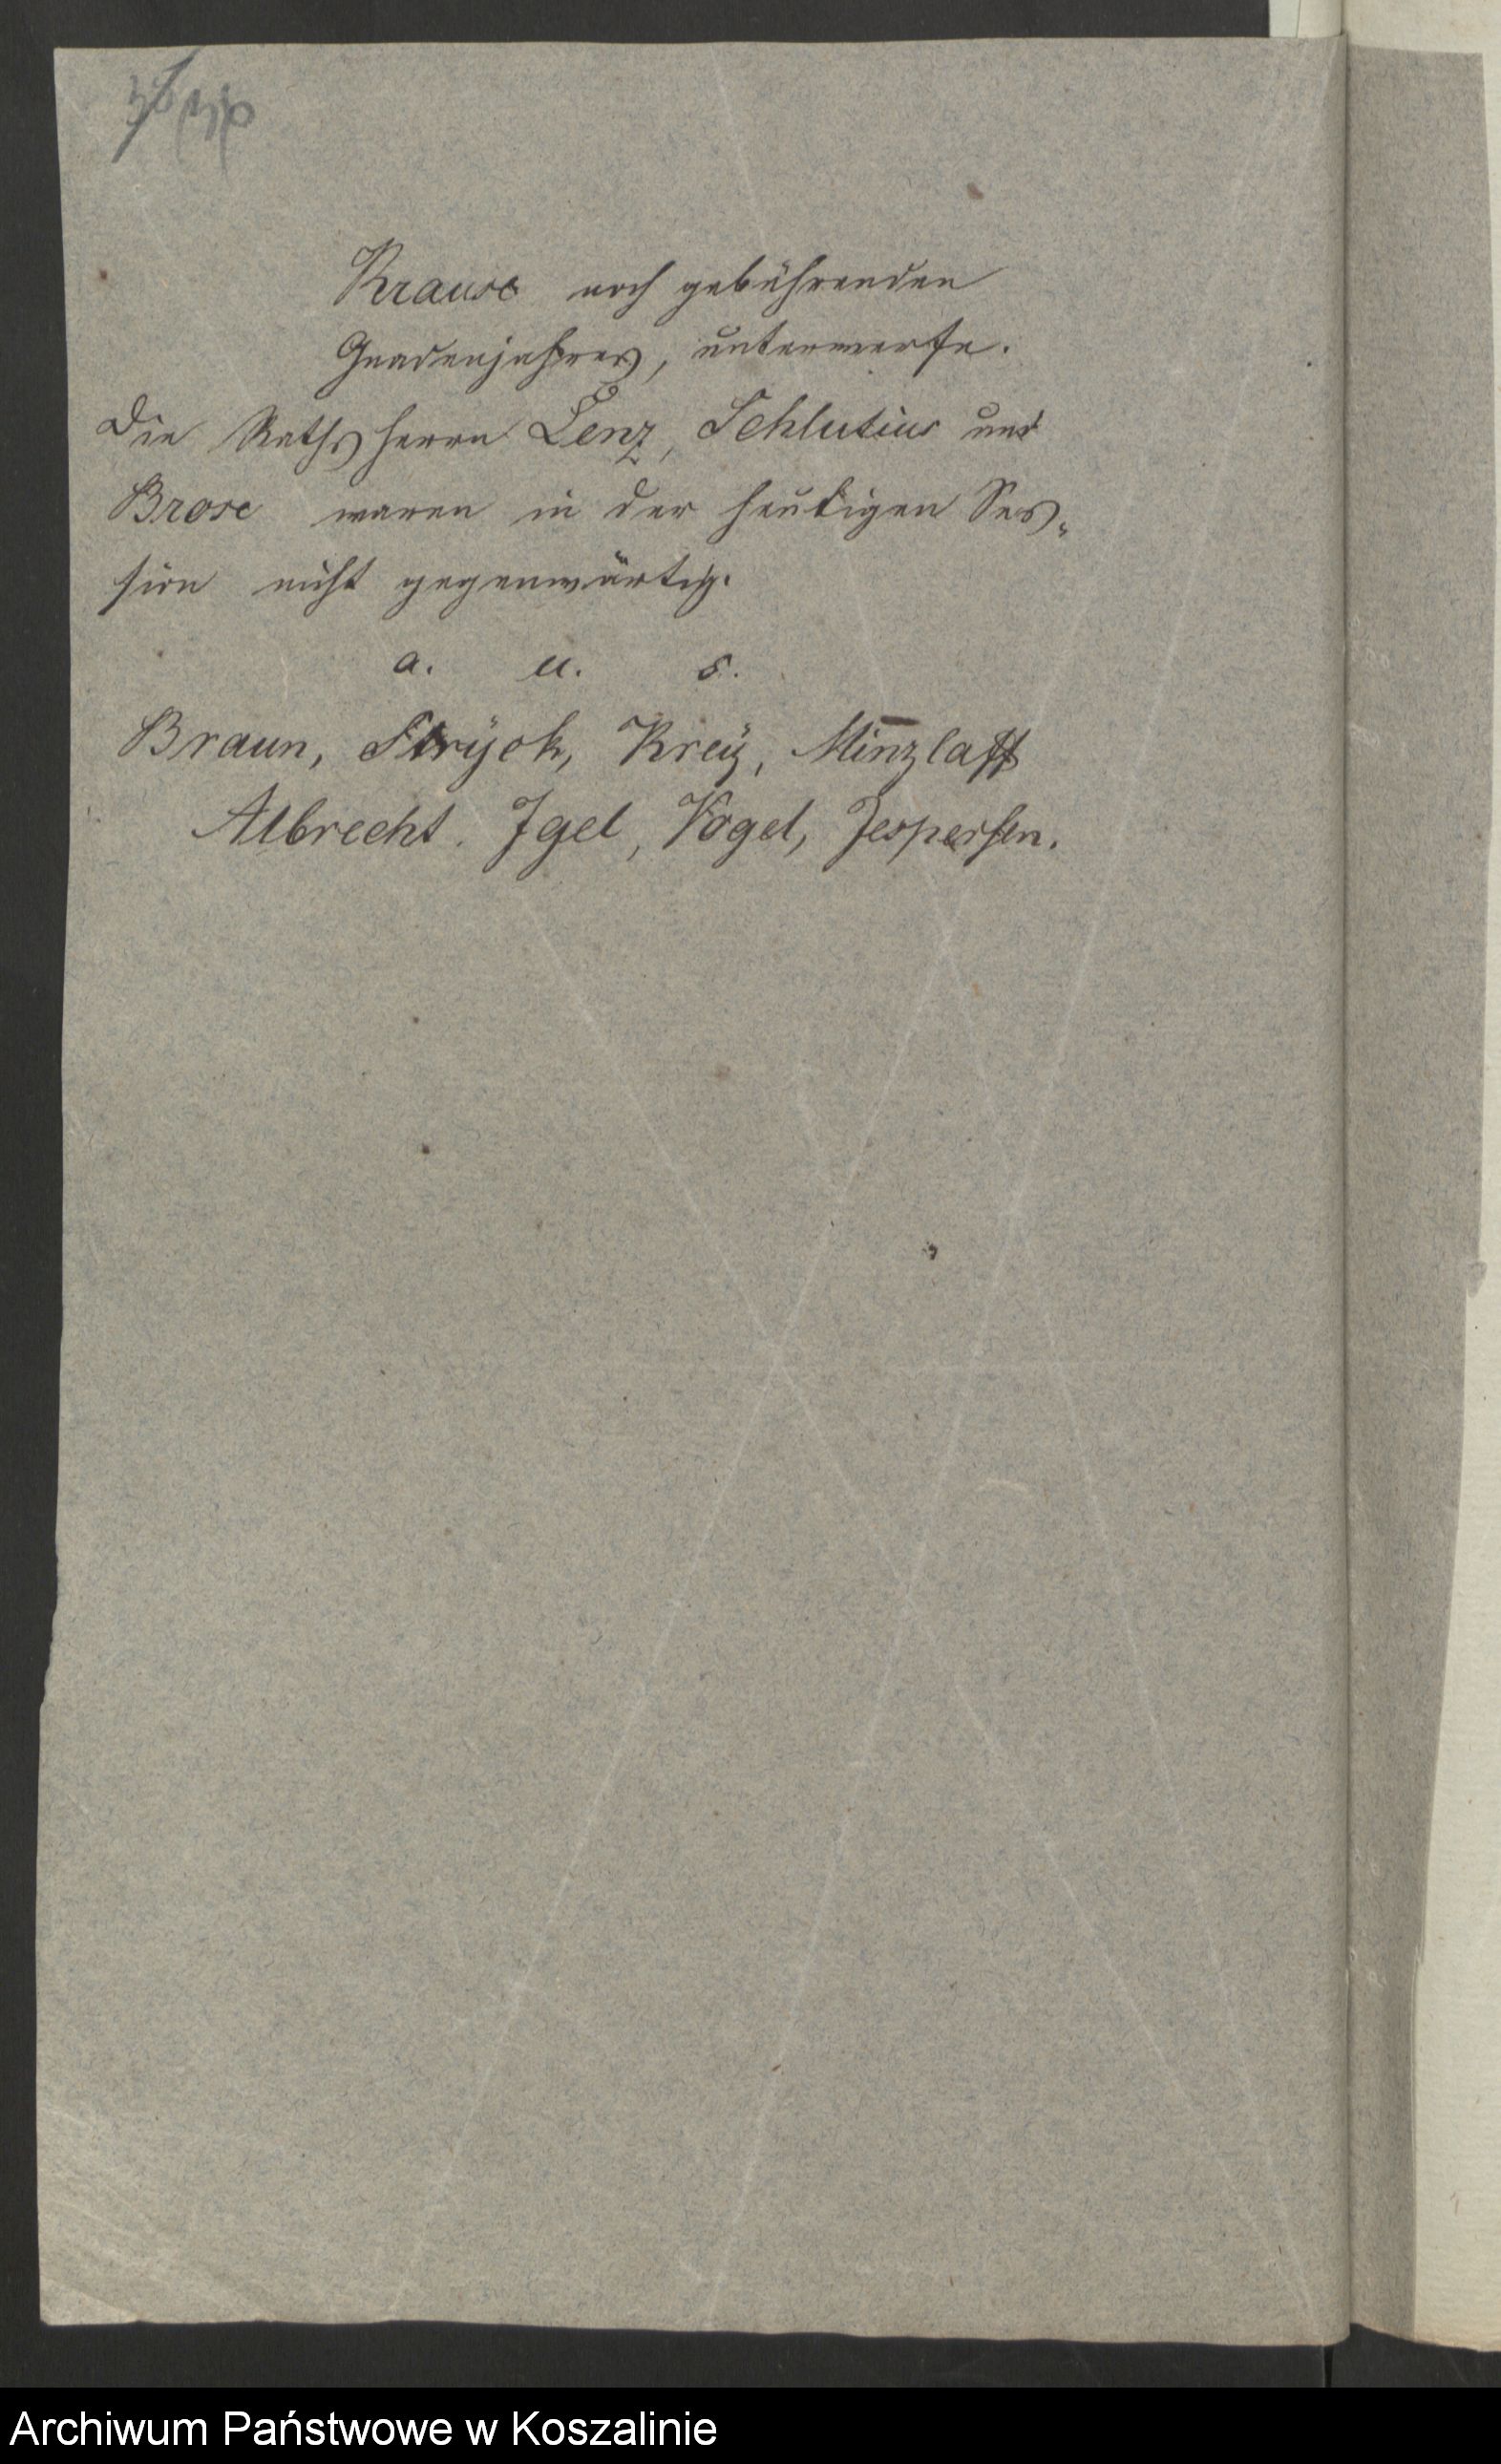 Krause noch gebührenden
Gnadenjahres, unterwerfe.
Die Rathsherrn Lenz, Schlutius und
Brose waren in der heutigen Ses-
sion nicht gegenwärtig.
a. u. s.
Braun, Stryck, Kreÿ, Minzlaff
Albrecht. Igel, Vogel, Jespersen.
Archiwum Państwowe w Koszalinie